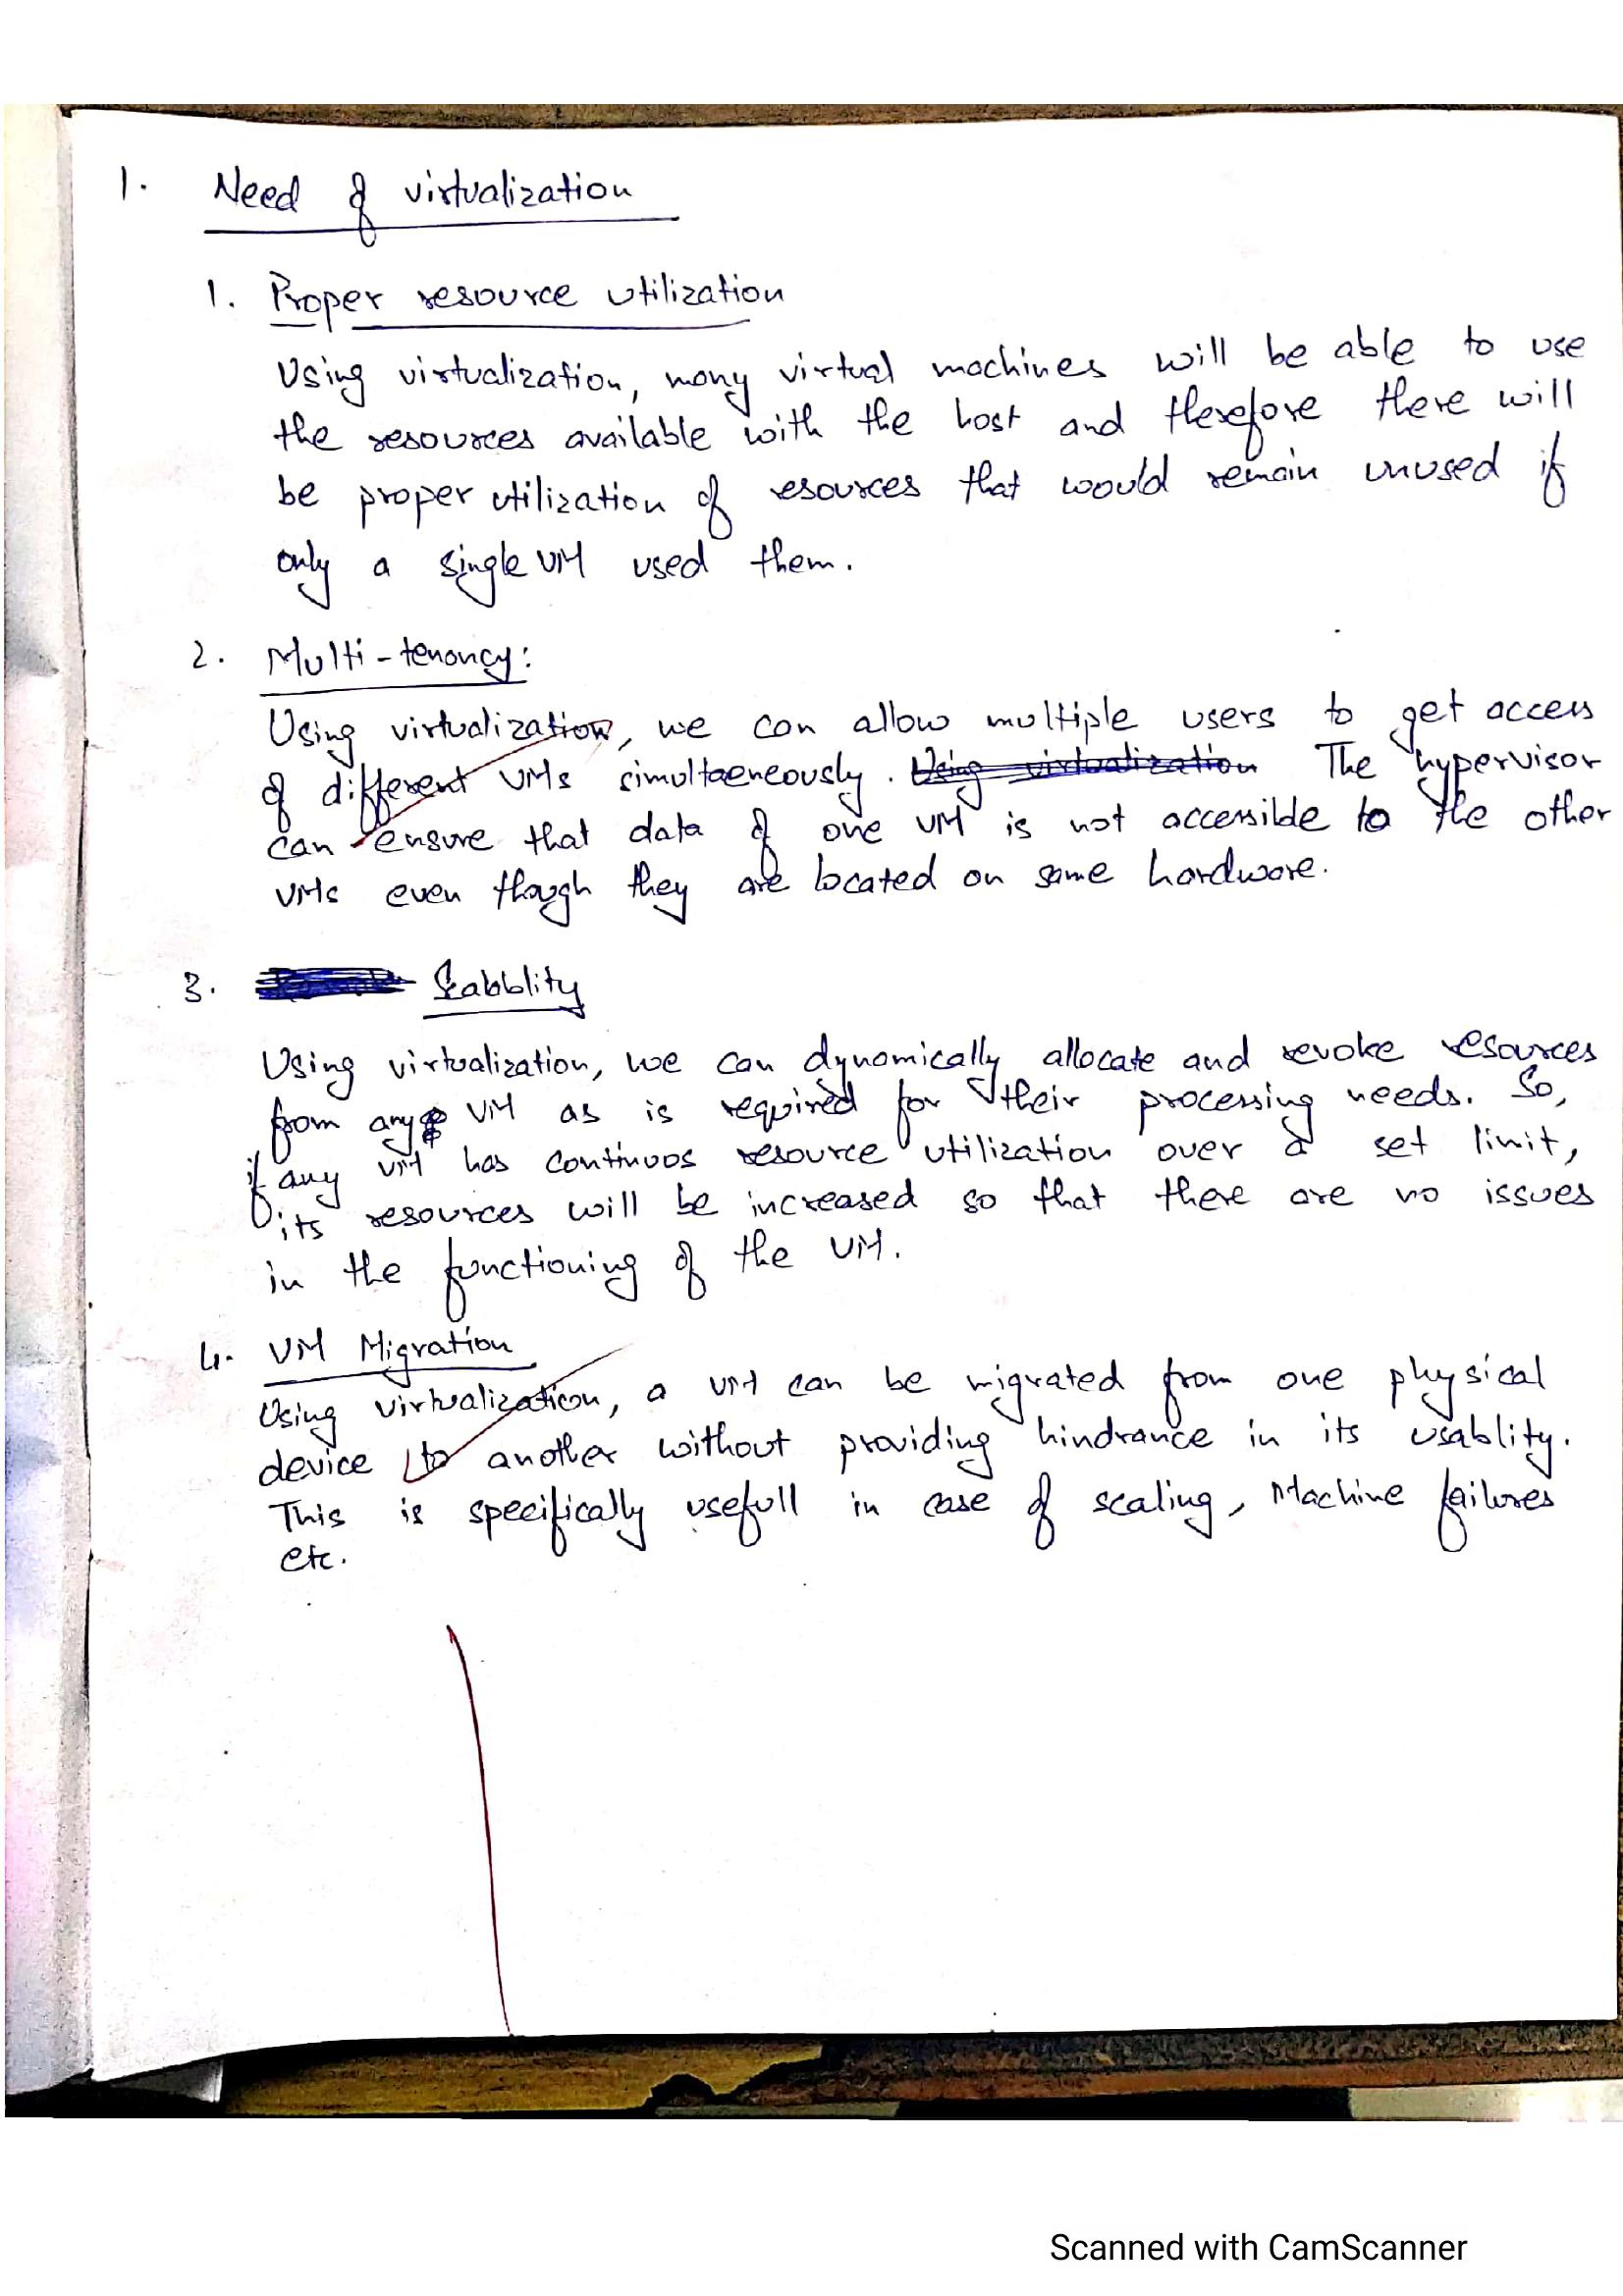 1. Need of virtualization
1. Proper resource utilization
Using virtualization, many virtual machines will be able to use
the resources available with the host and therefore there will
be proper utilization of resources that would remain unused if
only a single VM used them.
2. Multi-tenancy:
Using virtualization, we can allow multiple users to get access
of different VMs simultaeneously. Using virtualization The hypervisor
can ensure that data of one VM is not accessible to the other
VMs even though they are located on same hardware.
3. Scabblity
Using virtualization, we can dynamically allocate and revoke resources
from any VM as is required for their processing needs. So,
if any VM has continuos resource utilization over a set limit,
its resources will be increased so that there are no issues
in the functioning of the VM.
4. VM Migration
Using virtualization, a VM can be migrated from one physical
device to another without providing hindrance in its usablity.
This is specifically usefull in case of scaling, Machine failures
etc.
Scanned with CamScanner